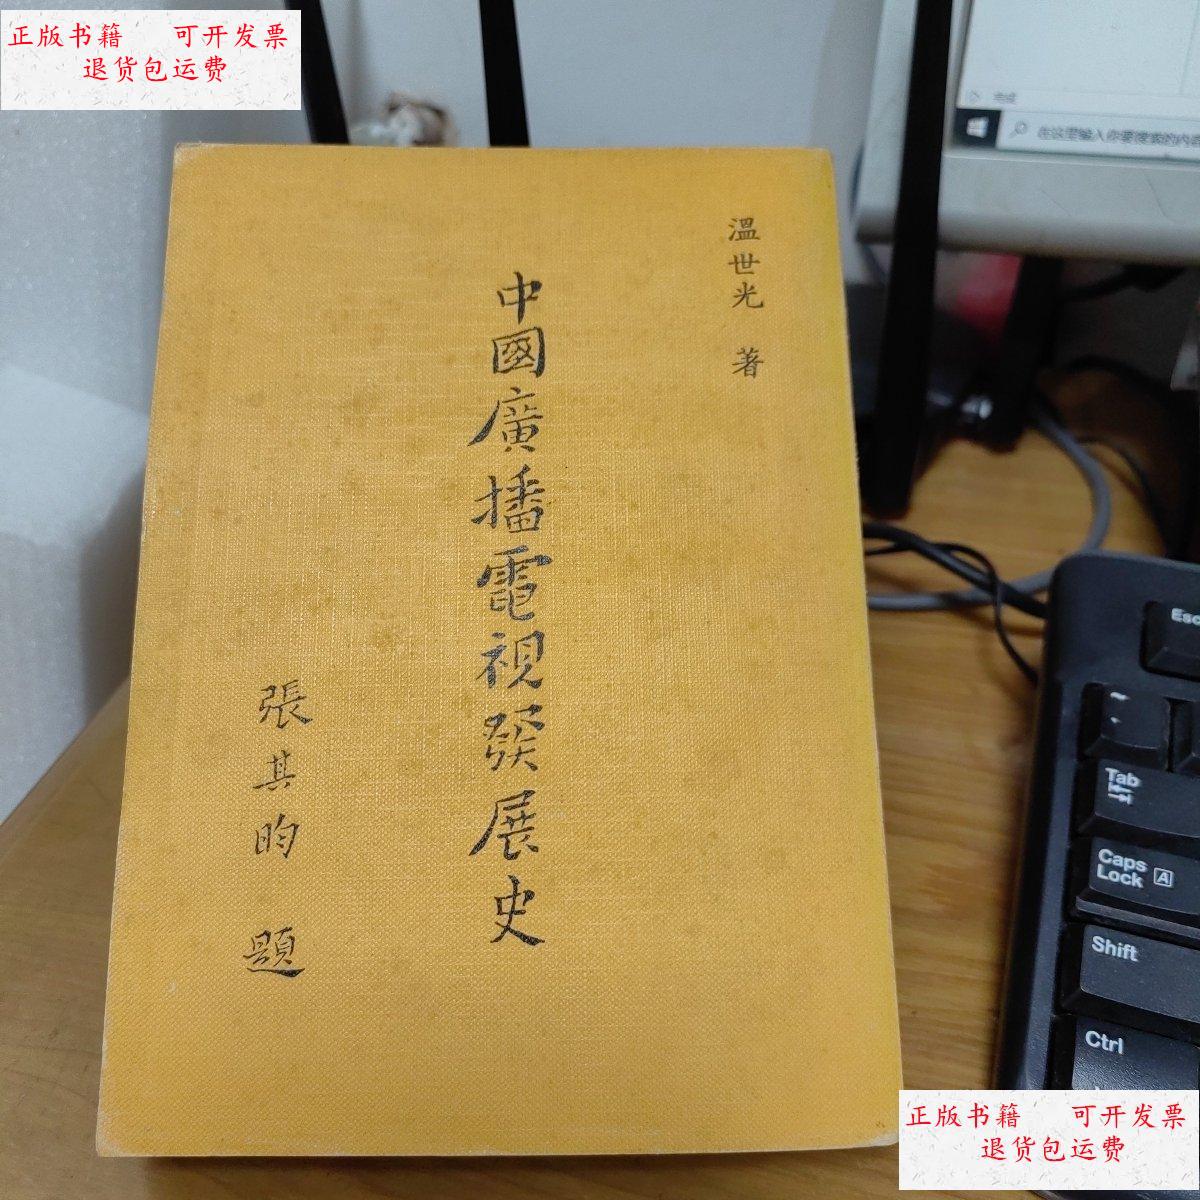 正版书籍 可开发票
退货包运费
溫世光 著
中國廣播電視發展史
張其昀 題
在这里输入你要搜索的内容
Esc
~
Tab
Caps
Lock A
Shift
Ctrl
正版书籍 可开发票
退货包运费